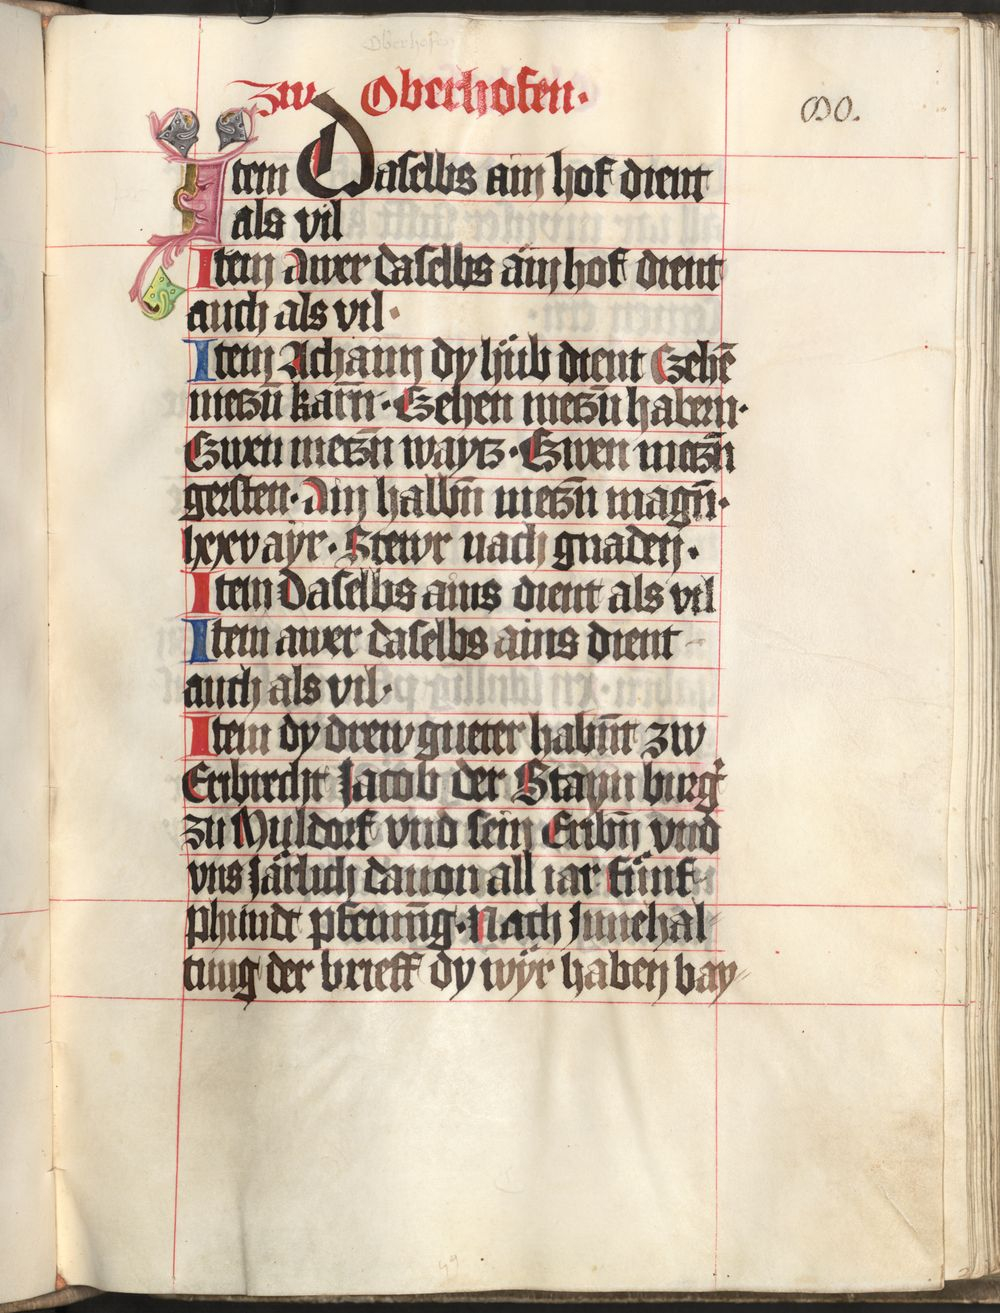 Oberhofen
zw Oberhofen.
Item Daselbs ain hof dient
als vil
Item Awer daselbs äin hof dient
auch als vil.
Item Achaim dy hüb dient Czehē
meczñ karñ. Czehen meczñ habern.
Czwen meczñ waytz. Czwen meczñ
gersten. Ain halbñ meczñ magñ.
lxxv ayr. Stewr nach gnaden.
Item Daselbs ains dient als vil
Item awer daselbs ains dient
auch als vil.
Item dy drew gueter habnt zw
Eribrecht Jacob der Stayn burg̃
zu Muldorf vnd sein Eribñ vnd
vns Järlich dauon all iar fünf
phundt pfening. Nach Innehal
tung der brieff dy wyr haben bay